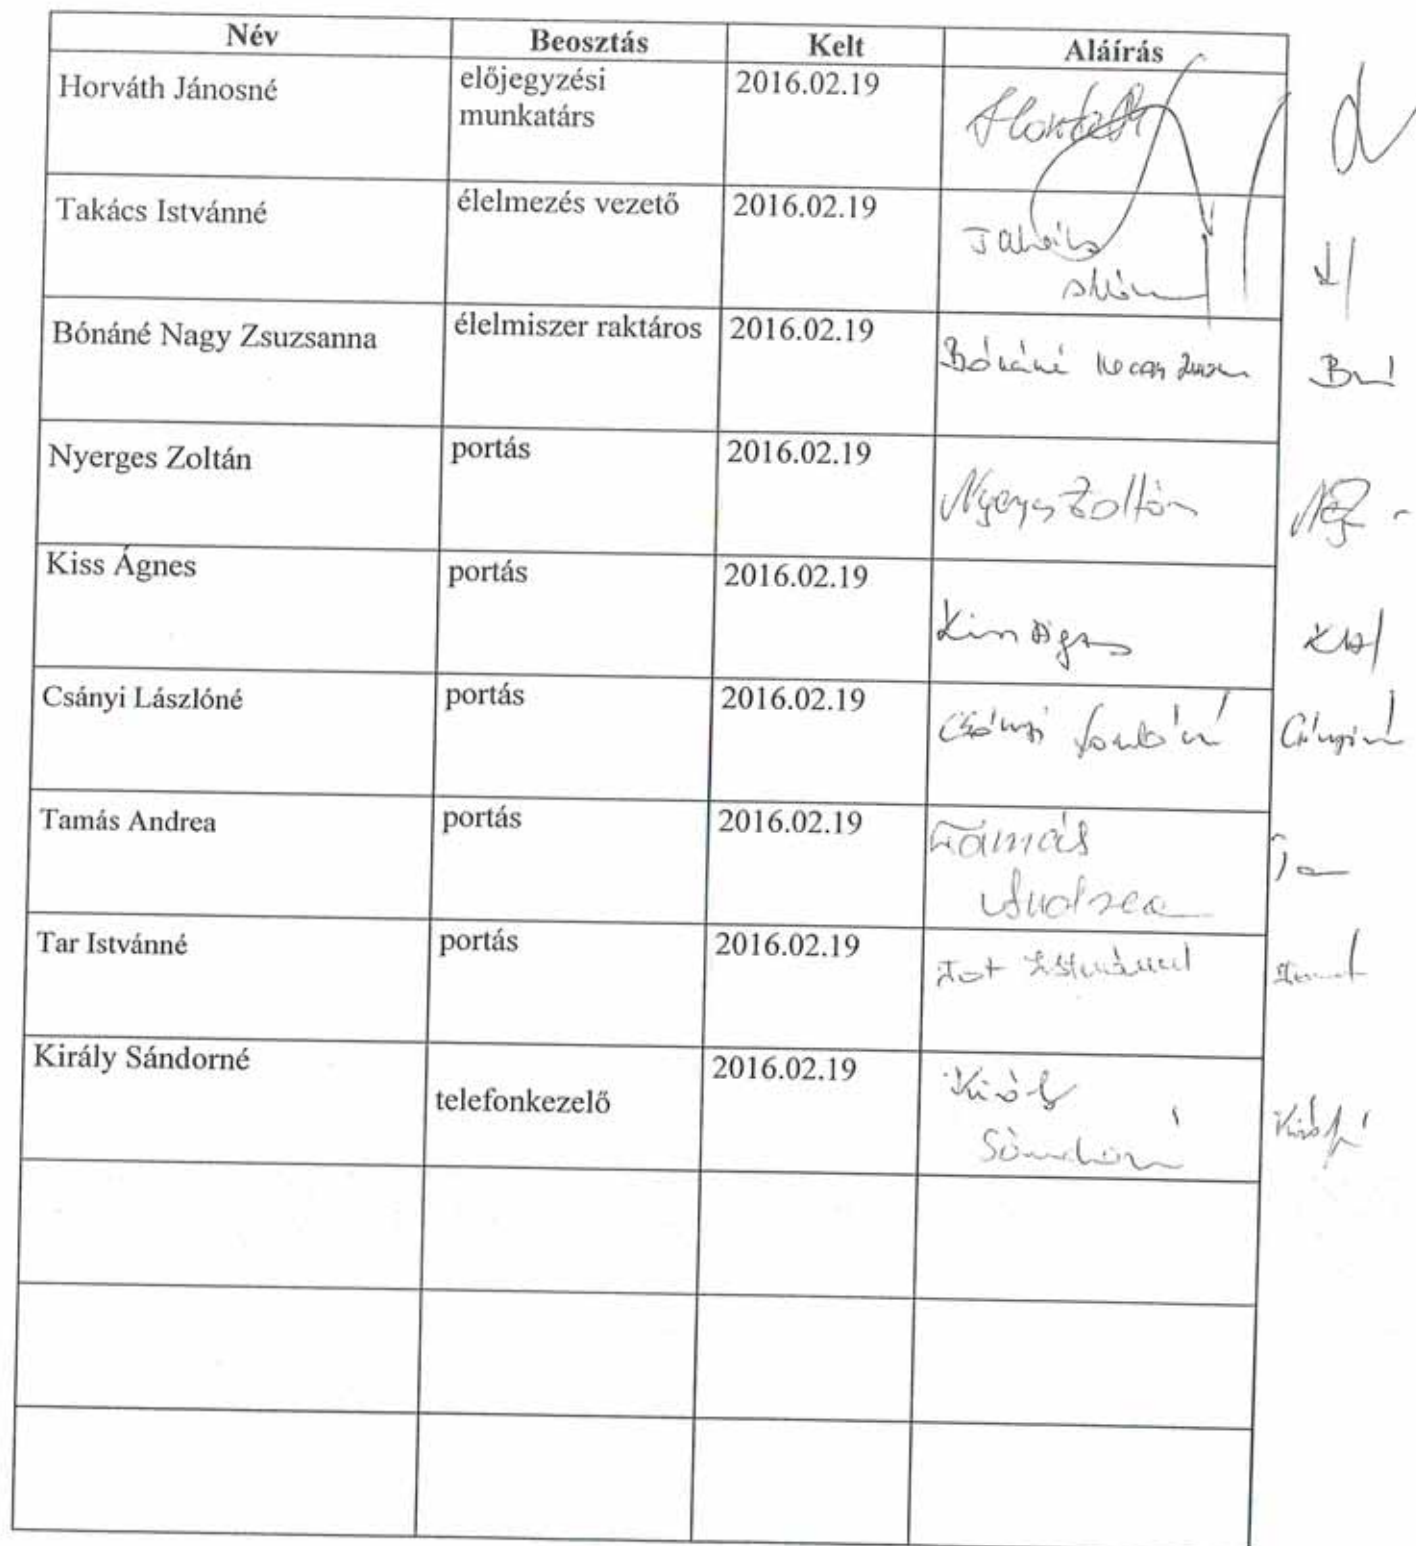 Név Beosztás Kelt Aláírás
Horváth Jánosné előjegyzési 2016.02.19
munkatárs
Horváth
Takács Istvánné élelmezés vezető 2016.02.19
Takács
Bónáné Nagy Zsuzsanna élelmiszer raktáros 2016.02.19
Bónáné Nagy
Nyerges Zoltán portás 2016.02.19
Nyerges Zoltán
Kiss Ágnes portás 2016.02.19
Kiss Ágnes
Csányi Lászlóné portás 2016.02.19
Csányi Csányiné
Tamás Andrea portás 2016.02.19
Tamás
Andrea
Tar Istvánné portás 2016.02.19
Tar Istvánné
Király Sándorné 2016.02.19
telefonkezelő
Király
Sándorné